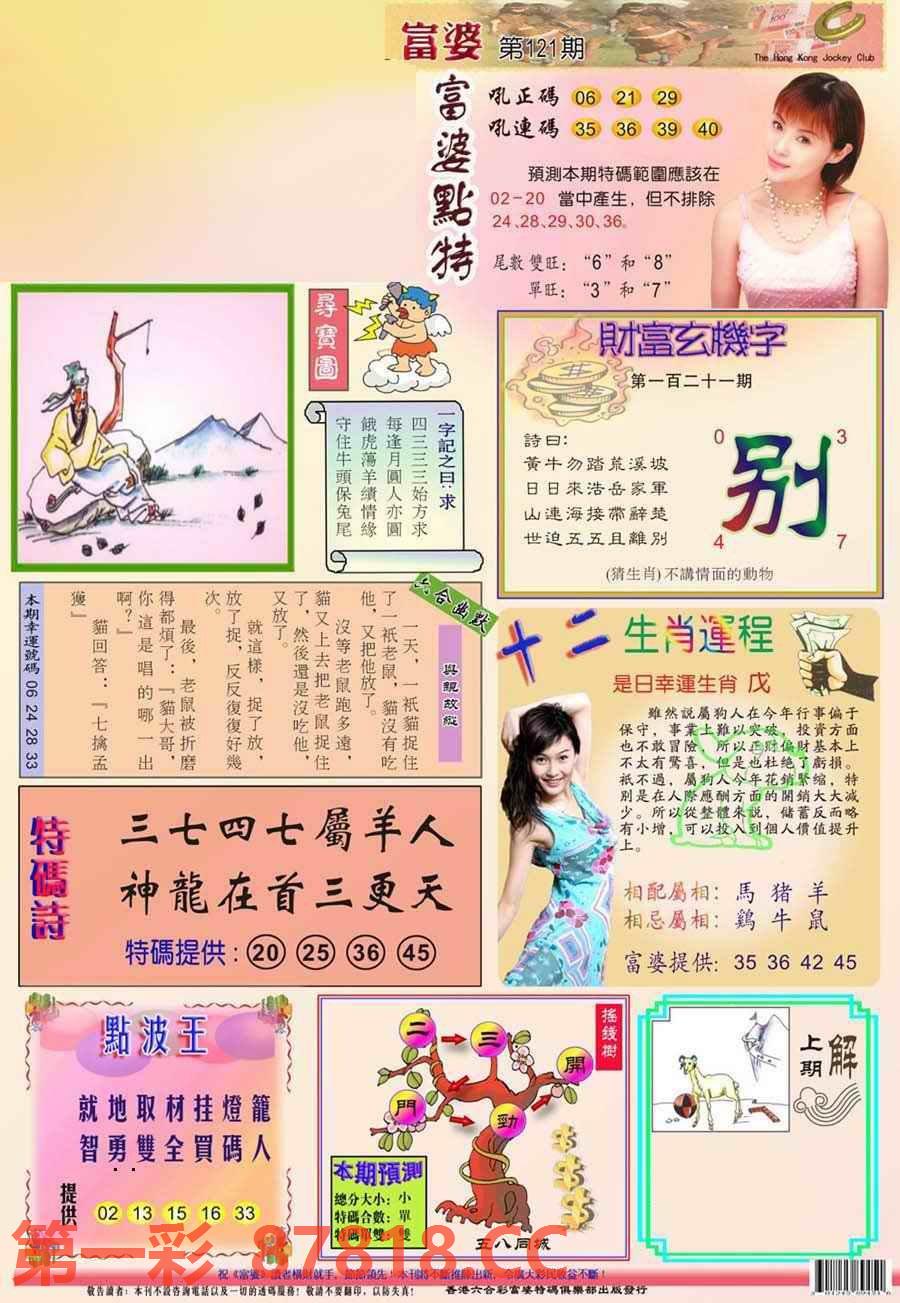 富婆 第121期
The Hong Kong Jockey Club
富婆點特
吼正碼 06 21 29
吼連碼 35 36 39 40
預測本期特碼範圍應該在
02-20 當中產生，但不排除
24、28、29、30、36。
尾數雙旺：“6”和“8”
單旺：“3”和“7”
尋寶圖
一字記之曰：求
四三三三始方求
每逢月圓人亦圓
餓虎蕩羊績情緣
守住牛頭保兔尾
財富玄機字
第一百二十一期
詩曰：
黃牛勿踏荒溪坡
日日來浩岳家軍
山連海接帶辭楚
世迫五五且離別
0 3
别
4 7
(猜生肖)不講情面的動物
六合幽默
與親故縱
一天，一衹貓捉住
了一衹老鼠，貓沒有吃
他，又把他放了。
沒等老鼠跑多遠，
貓又上去把老鼠捉住
了，然後還是沒吃他，
又放了。
就這樣，捉了放，
放了捉，反反復復好幾
次。
最後，老鼠被折磨
得都煩了：『貓大哥，
你這是唱的哪一出
啊？』
貓回答：『七擒孟
獲』
本期幸運號碼 06 24 28 33
十二生肖運程
是日幸運生肖 戊
雖然說屬狗人在今年行事偏于
保守，事業上難以突破，投資方面
也不敢冒險，所以正財偏財基本上
不太有驚喜，但是也杜絕了虧損。
衹不過，屬狗人今年花銷緊縮，特
別是在人際應酬方面的開銷大大減
少。所以從整體來説，儲蓄反而略
有小增，可以投入到個人價值提升
上。
相配屬相：馬 豬 羊
相忌屬相：鷄 牛 鼠
富婆提供：35 36 42 45
特碼詩
三七四七屬羊人
神龍在首三更天
特碼提供：20 25 36 45
點波王
就地取材挂燈籠
智勇雙全買碼人
提供 02 13 15 16 33
搖錢樹
二 三 開
門 勁
本期預測
總分大小：小
特碼合數：單
特碼單雙：雙
五八同城
上期解
第一彩 87818.CC
祝《富婆》讀者橫財就手，節節領先！本刊將不斷推陳出新，令廣大彩民收益不斷！
敬告讀者：本刊不設咨詢電話以及一切的透碼服務！敬請不要翻印，以防失真！
香港六合彩富婆特碼俱樂部出版發行